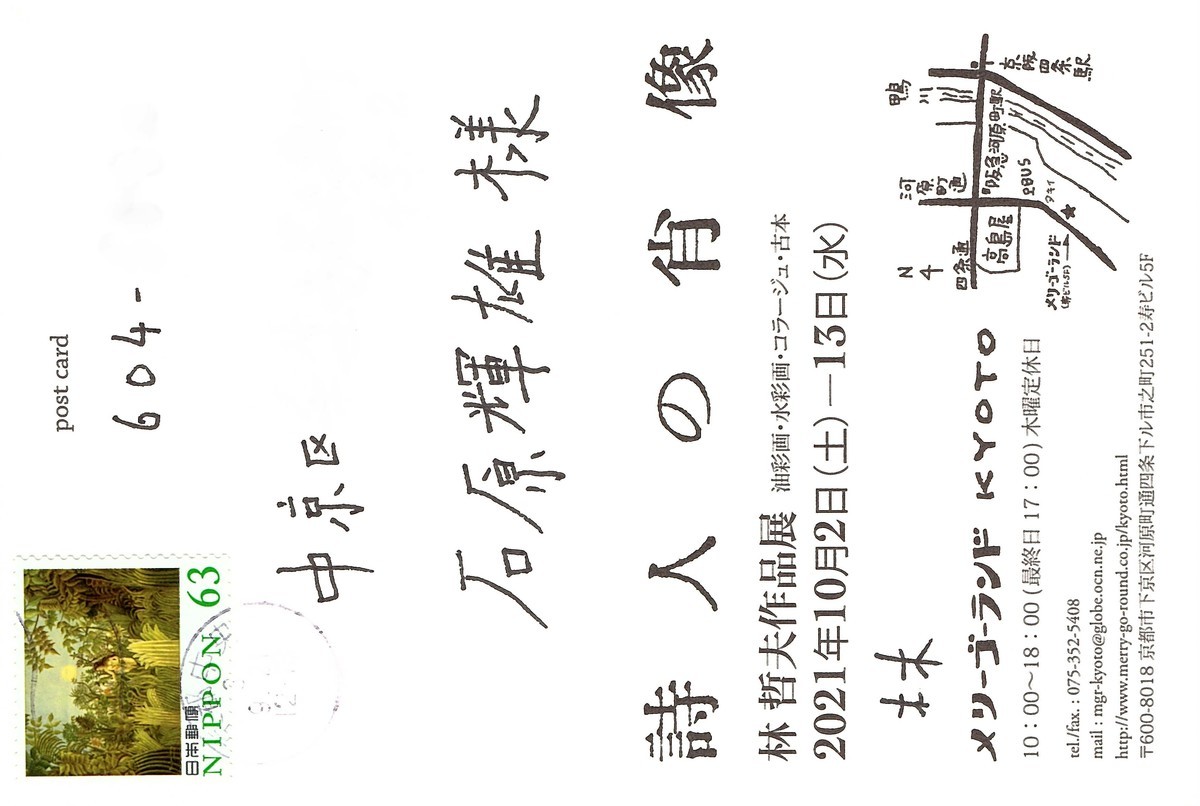 post card
604-
日本郵便
NIPPON 63
中京区
石原輝雄様
詩人の肖像
林 哲夫作品展 油彩画・水彩画・コラージュ・古本
2021年10月2日(土)—13日(水)
林
メリーゴーランド KYOTO
10:00〜18:00(最終日17:00)木曜定休日
tel./fax.:075-352-5408
mail:mgr-kyoto@globe.ocn.ne.jp
http://www.merry-go-round.co.jp/kyoto.html
〒600-8018 京都市下京区河原町通四条下ル市之町251-2寿ビル5F
N
四条通
河原町通
鴨川
京阪四条駅
阪急河原町駅
高島屋
OPBUS
タキイ
メリーゴーランド
(寿ビル5F)